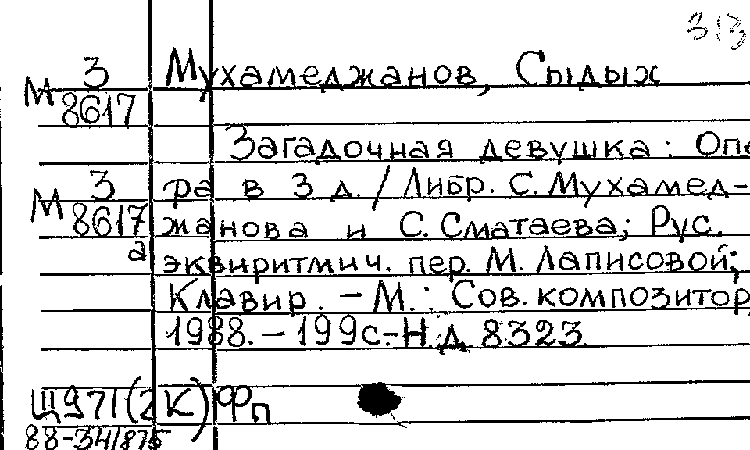 313
М 3 Мухамеджанов, Сыдых
8617
Загадочная девушка: Опе
М 3 ра в 3 д. / Либр. С. Мухамед-
8617 жанова и С. Сматаева; Рус.
а эквиритмич. пер. М. Лаписовой;
Клавир. - М.: Сов. композитор,
1988. - 199с.- Н.д. 8323
Щ971(2К) Фп
88-341/875